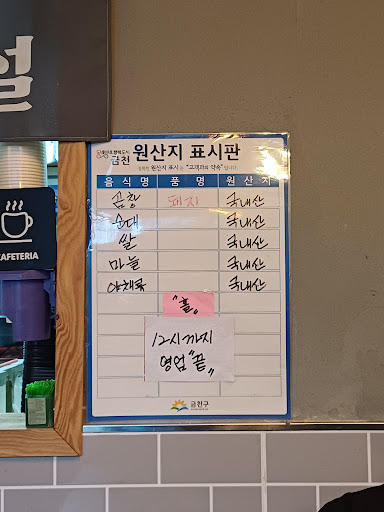 설
금천 원산지 표시판
정확한 원산지 표시는 "고객과의 약속"입니다.
음식명 품명 원산지
곱창 돼지 국내산
순대 국내산
쌀 국내산
마늘 국내산
야채류 국내산
"홀"
12시까지
영업"끝"
CAFETERIA
금천구